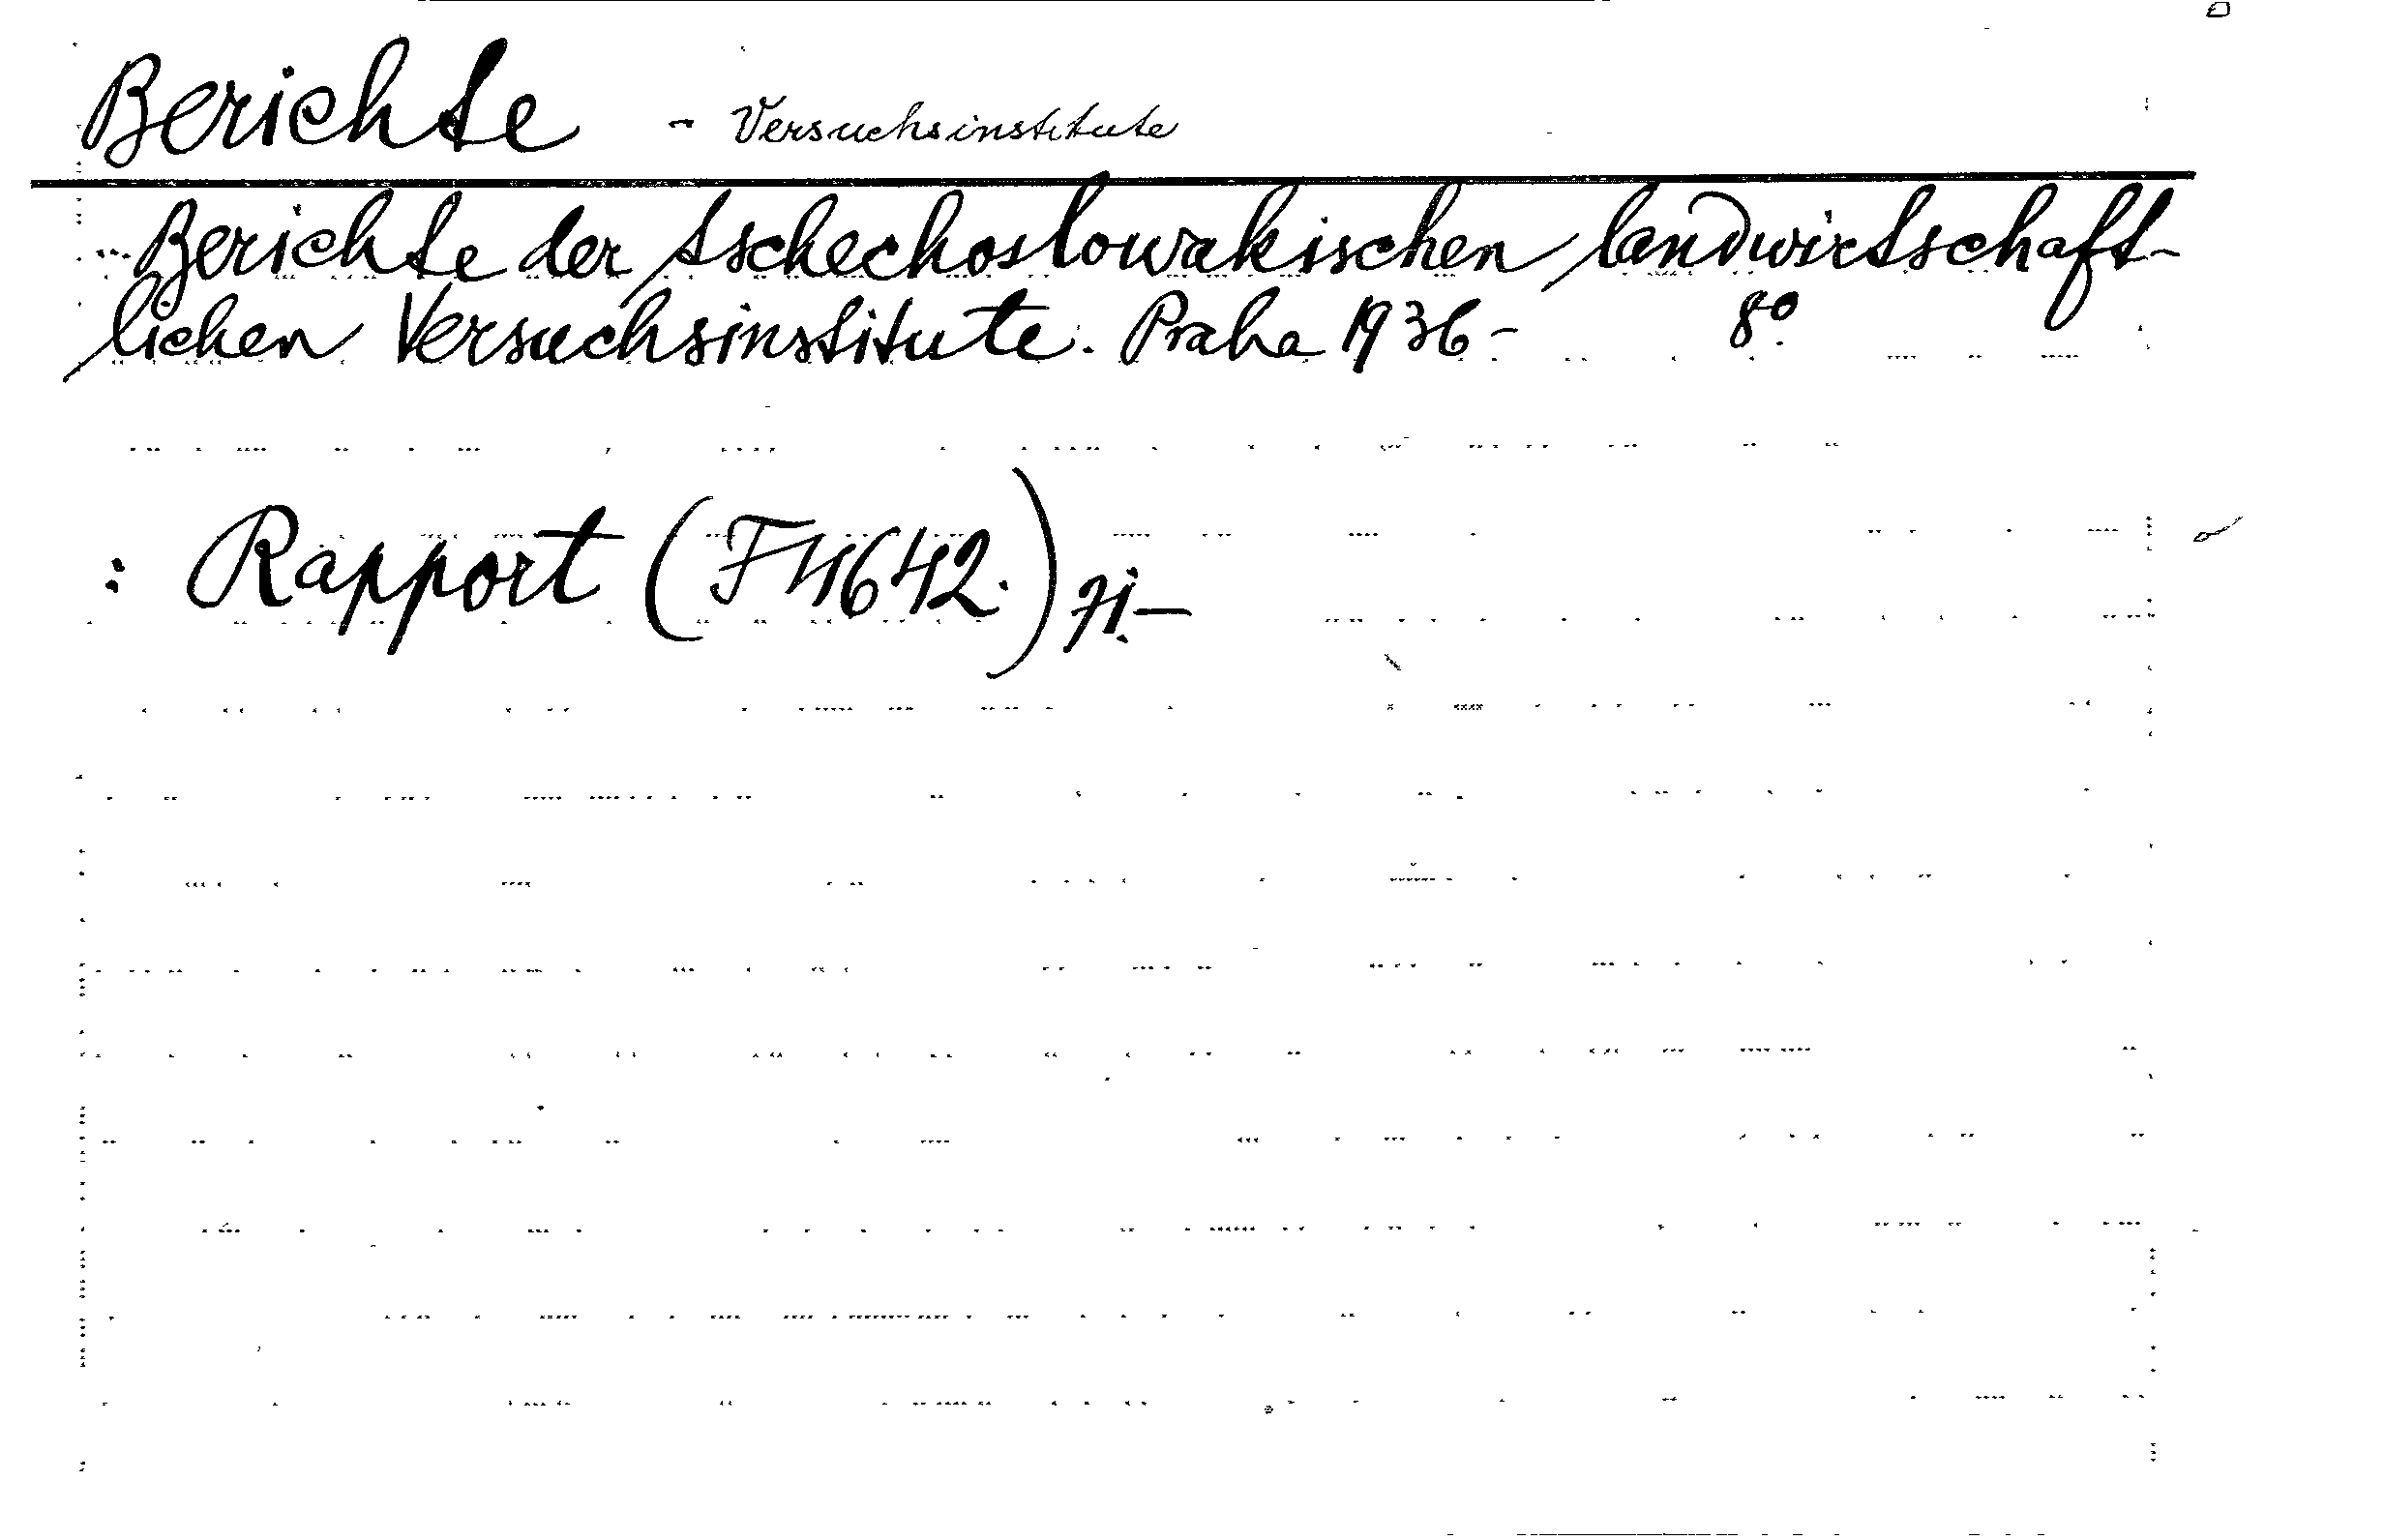 Berichte - Versuchsinstitute
Berichte der tschechoslowakischen landwirtschaft-
lichen Versuchsinstitute. Praha 1936- 8°.
: Rapport (F4642.)